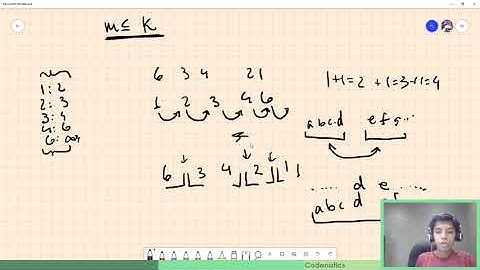 m≤ K
6 3 4 2 1
1 2 3 4 6
1+1=2 +1=3+1=4
1: 2
2: 3
3: 4
4: 6
6:
abcd efg...
6 3 4 2 1
..... d e .....
abcd
Codenatics